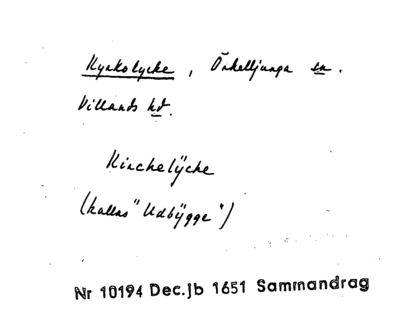 Kyrkolycke, Örkelljunga sn.
Villands hd.
Kirchelÿche
(kallas "Udbÿgge")
Nr 10194 Dec.jb 1651 Sammandrag